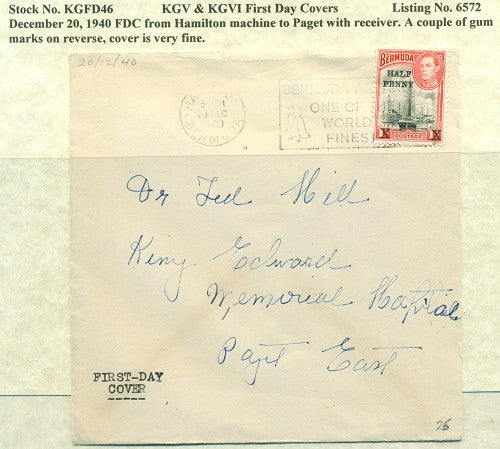 Stock No. KGFD46 KGV & KGVI First Day Covers Listing No. 6572
December 20, 1940 FDC from Hamilton machine to Paget with receiver. A couple of gum
marks on reverse, cover is very fine.
20/12/40
BERMUDA
BERMUDA
ONE OF
WORLD
FINES
BERMUDA
HALF
PENNY
X X
POSTAGE
Dr Ted Hill
King Edward
Memorial Hospital
Paget East
FIRST-DAY
COVER
76